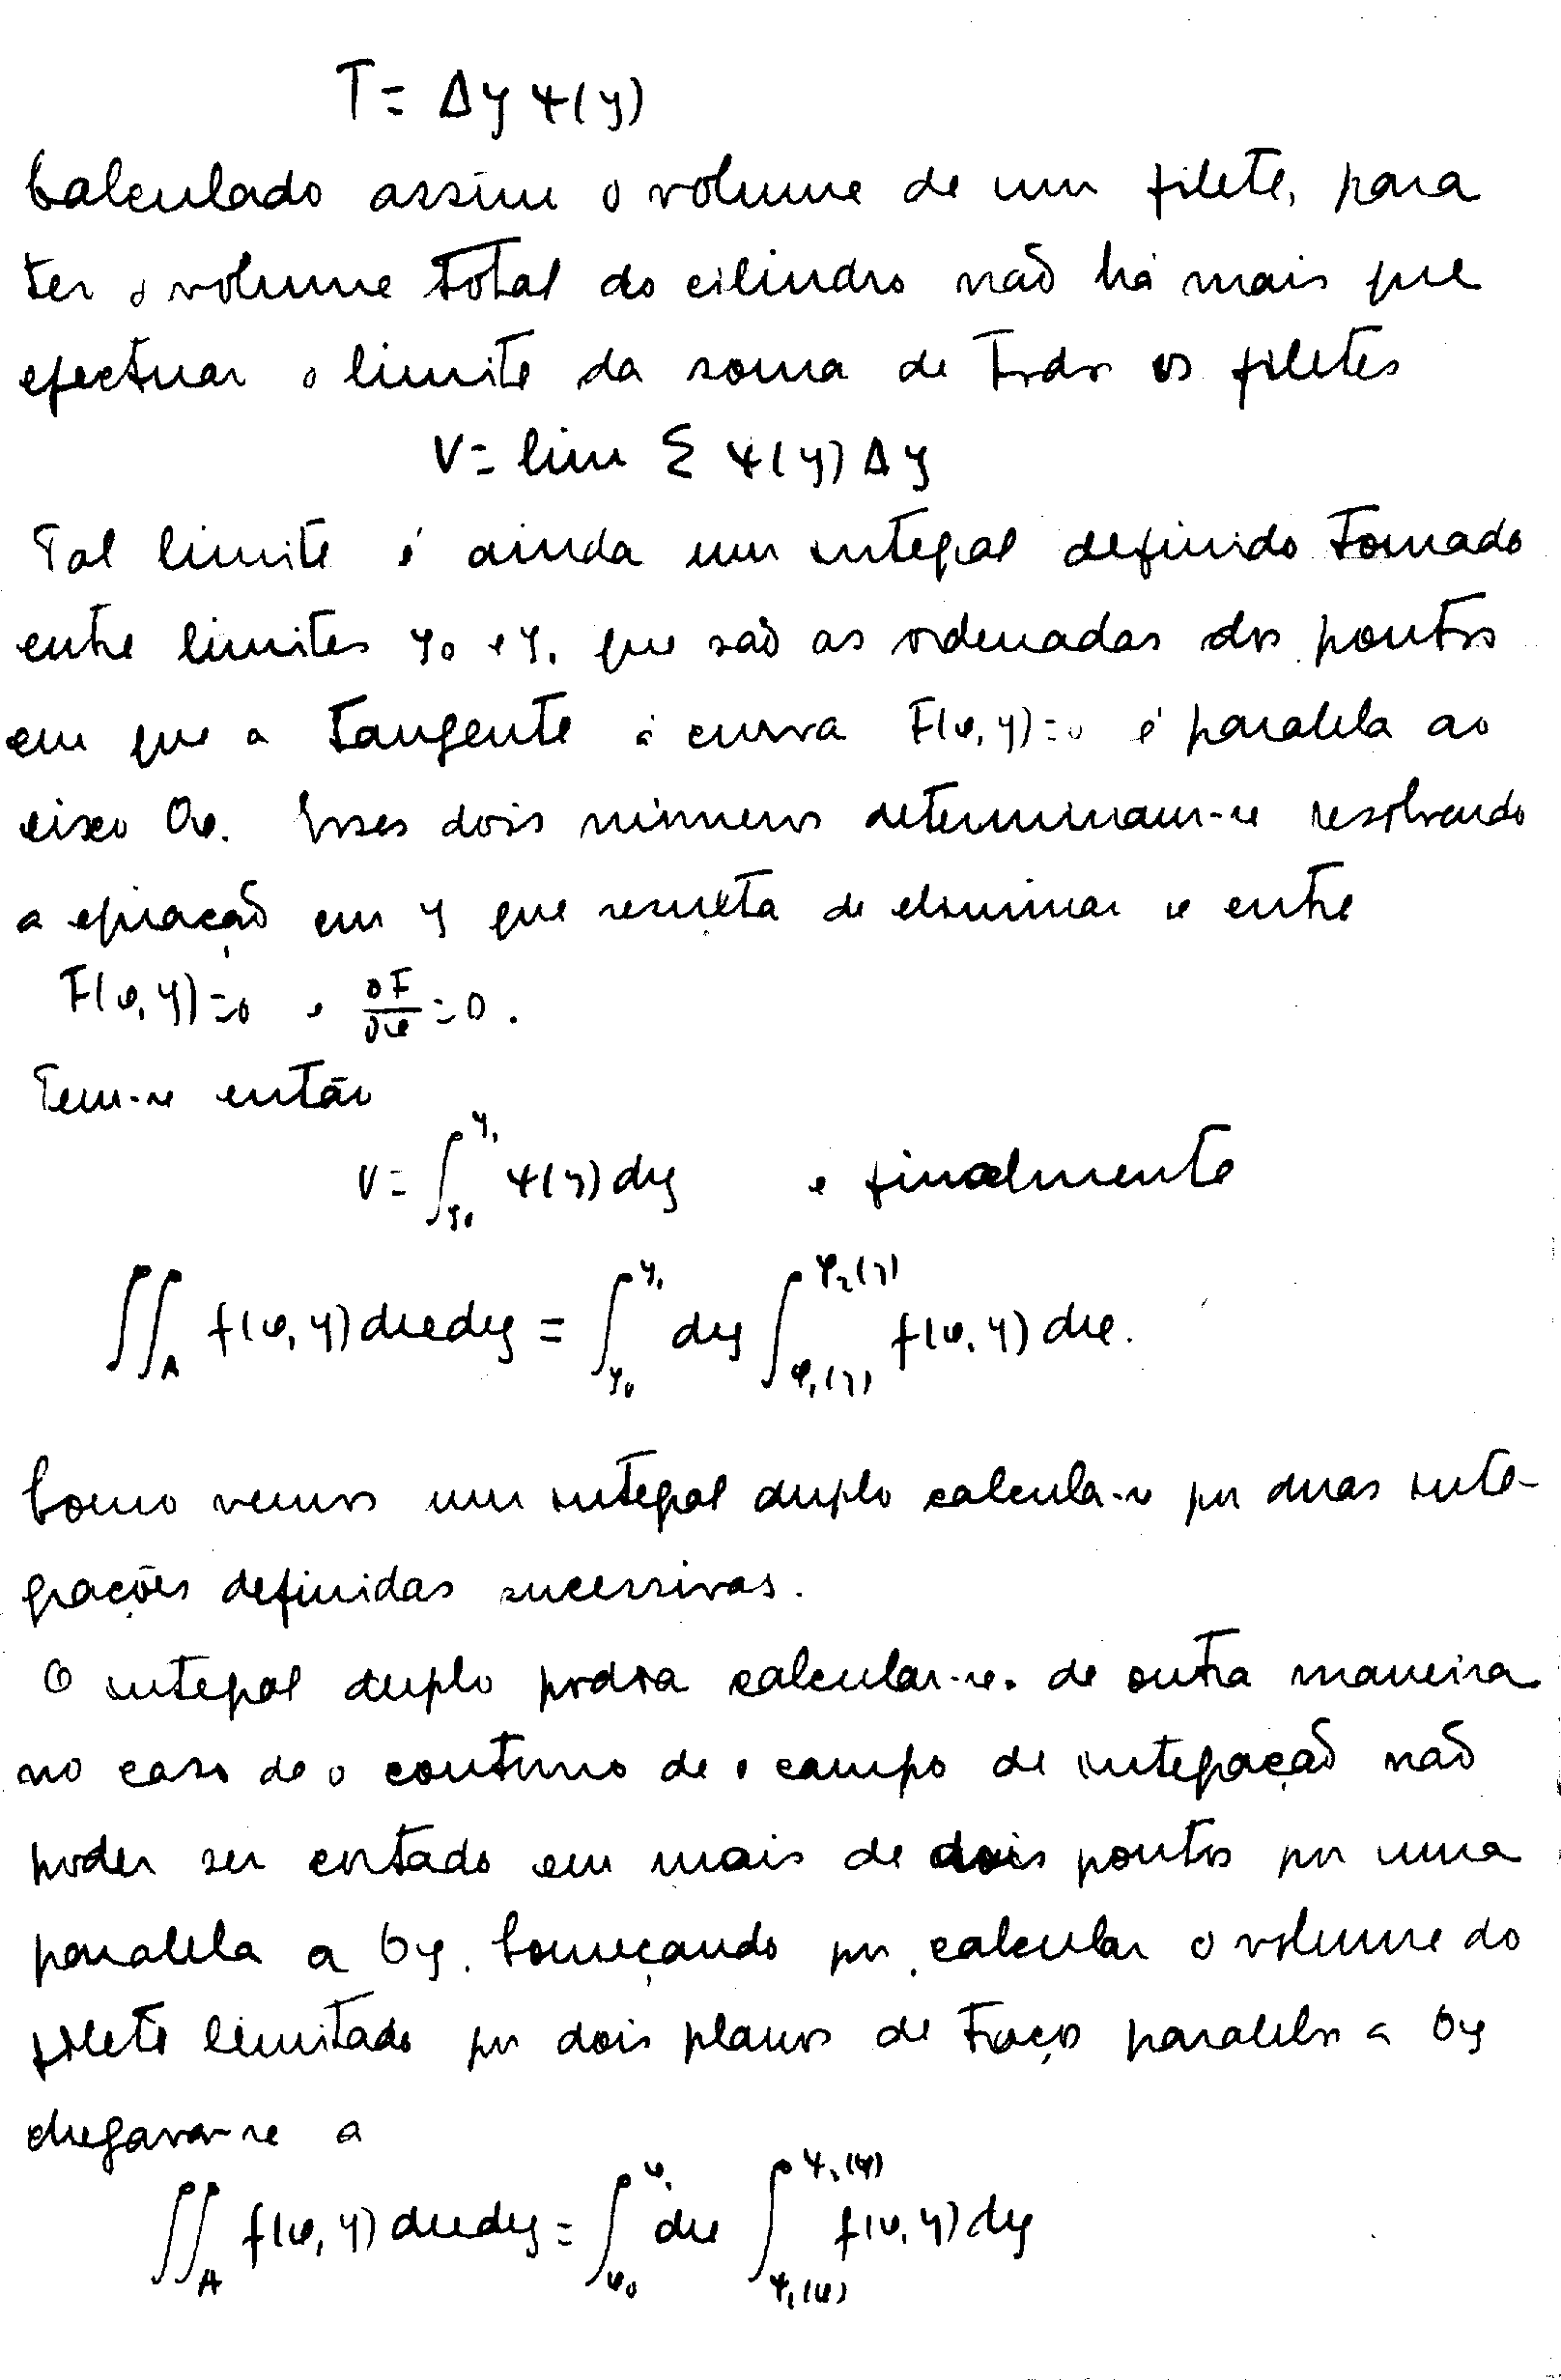 T = Δy ψ(y)
Calculado assim o volume de um filete, para
ter o volume total do cilindro não há mais que
efectuar o limite da soma de todos os filetes
V = lim Σ ψ(y) Δy
Tal limite é ainda um integral definido tomado
entre limites y₀ e y₁ que são as ordenadas dos pontos
em que a tangente à curva F(x,y)=0 é paralela ao
eixo Ox. Esses dois números determinam-se resolvendo
a equação em y que resulta de eliminar x entre
F(x,y)=0 e ∂F/∂x = 0.
Tem-se então
V = ∫_{y₀}^{y₁} ψ(y) dy e finalmente
∬_A f(x,y) dx dy = ∫_{y₀}^{y₁} dy ∫_{φ₁(y)}^{φ₂(y)} f(x,y) dx.
Como vemos um integral duplo calcula-se por duas inte-
grações definidas sucessivas.
O integral duplo podia calcular-se de outra maneira
no caso de o contorno de o campo de integração não
poder ser cortado em mais de dois pontos por uma
paralela a Oy. Começando por calcular o volume do
filete limitado por dois planos de traços paralelos a Oy
chegava-se a
∬_A f(x,y) dx dy = ∫_{x₀}^{x₁} dx ∫_{ψ₁(x)}^{ψ₂(x)} f(x,y) dy